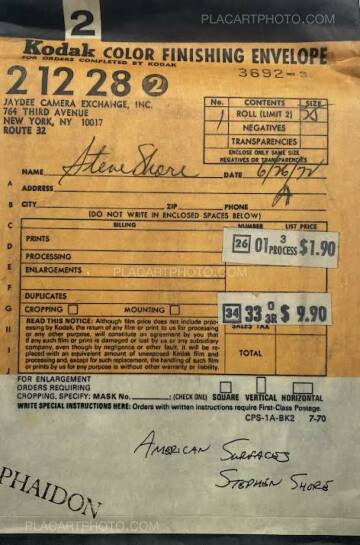 PLACARTPHOTO.COM
2
Kodak COLOR FINISHING ENVELOPE
FOR ORDERS COMPLETED BY KODAK
3692-3
2 12 28 2
JAYDEE CAMERA EXCHANGE, INC.
764 THIRD AVENUE
NEW YORK, NY, 10017
ROUTE 32
No. CONTENTS SIZE
1 ROLL (LIMIT 2) X
NEGATIVES
TRANSPARENCIES
ENCLOSE ONLY SAME SIZE
NEGATIVES OR TRANSPARENCIES
NAME Steve Shore DATE 6/26/72
ADDRESS A
CITY ZIP PHONE
(DO NOT WRITE IN ENCLOSED SPACES BELOW)
BILLING NUMBER LIST PRICE
PRINTS
26 01 3 PROCESS $1.90
PROCESSING
ENLARGEMENTS
PLACARTPHOTO.COM
DUPLICATES
34 33 0 3R $ 9.90
CROPPING MOUNTING
SALES TAX
READ THIS NOTICE: Although film price does not include processing
by Kodak, the return of any film or print to us for processing
or any other purpose, will constitute an agreement by you that
if any such film or print is damaged or lost by us or any subsidiary
company, even though by negligence or other fault, it will be replaced
with an equivalent amount of unexposed Kodak film and
processing and, except for such replacement, the handling of such film
or prints by us for any purpose is without other warranty or liability.
TOTAL
A
B
C
D
E
F
G
H
I
FOR ENLARGEMENT
ORDERS REQUIRING
CROPPING, SPECIFY: MASK No. (CHECK ONE) SQUARE VERTICAL HORIZONTAL
WRITE SPECIAL INSTRUCTIONS HERE: Orders with written instructions require First-Class Postage.
CPS-1A-BK2 7-70
AMERICAN SURFACES
STEPHEN SHORE
PHAIDON
PLACARTPHOTO.COM